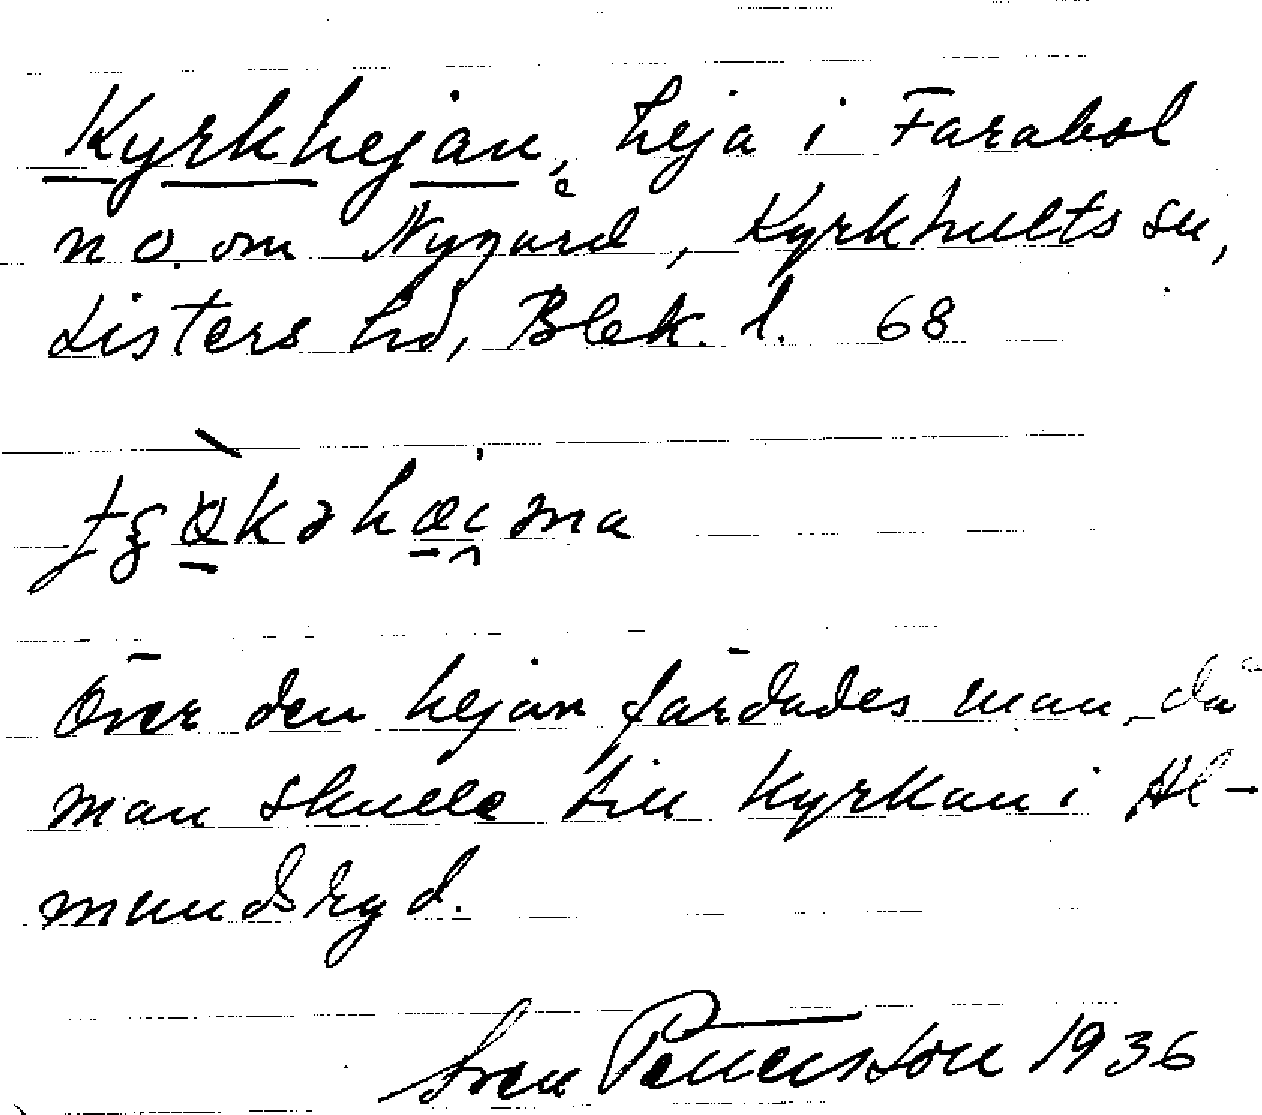 Kyrkhejan, heja i Farabol
n o. om Nygård, Kyrkhults sn,
Listers hd, Blek. l. 68
Över den hejan färdades man, då
man skulle till Kyrkan i Al-
mundsryd.
Sven Pettersson 1936